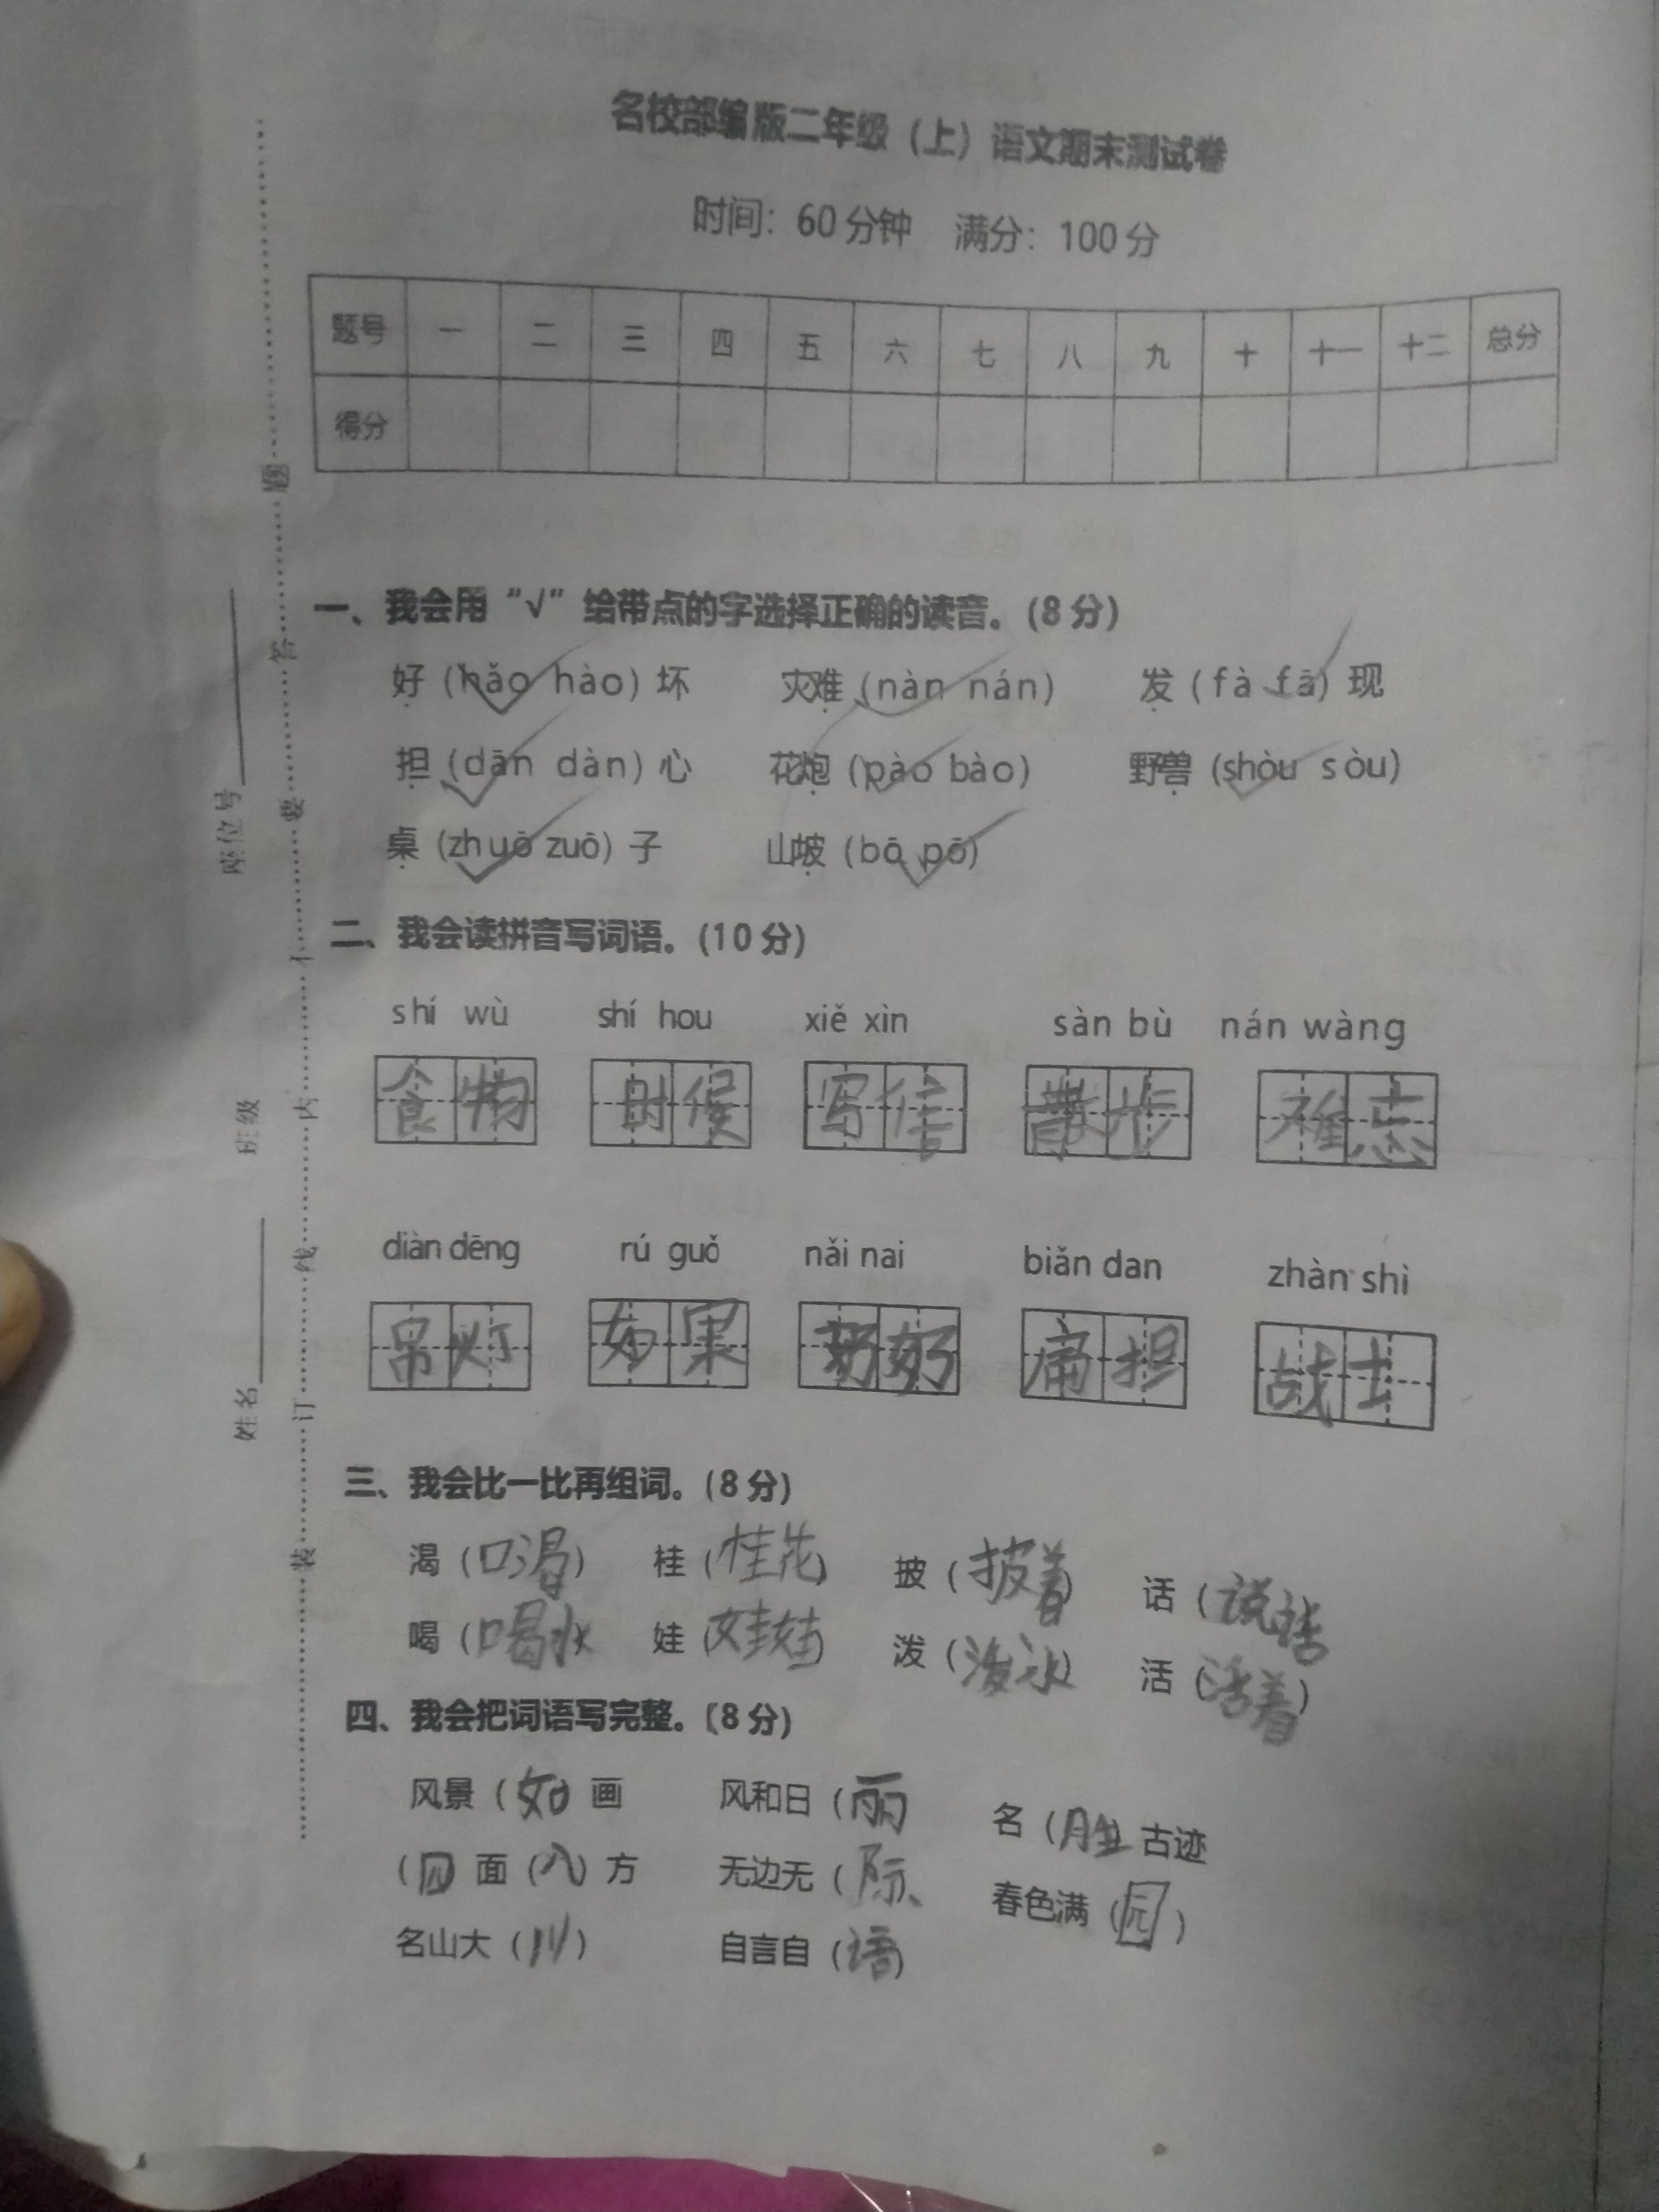 名校部编版二年级（上）语文期末测试卷
时间：60分钟 满分：100分
题号 一 二 三 四 五 六 七 八 九 十 十一 十二 总分
得分
一、我会用“√”给带点的字选择正确的读音。(8分)
好（hǎo hào）坏 灾难（nàn nán） 发（fà fā）现
担（dān dàn）心 花炮（pào bào） 野兽（shòu sòu）
桌（zhuō zuō）子 山坡（bō pō）
二、我会读拼音写词语。(10分)
shí wù shí hou xiě xìn sàn bù nán wàng
食物 时候 写信 散步 难忘
diàn dēng rú guǒ nǎi nai biǎn dan zhàn shì
吊灯 如果 奶奶 担 战士
三、我会比一比再组词。(8分)
渴（口渴） 桂（桂花） 披（披着） 话（说话
喝（喝水 娃（娃娃） 泼（泼水） 活（活着）
四、我会把词语写完整。(8分)
风景（如）画 风和日（丽 名（胜）古迹
（四 面（八）方 无边无（际 春色满（园）
名山大（川） 自言自（语）
座位号 班级 姓名
装 订 线 内 不 要 答 题